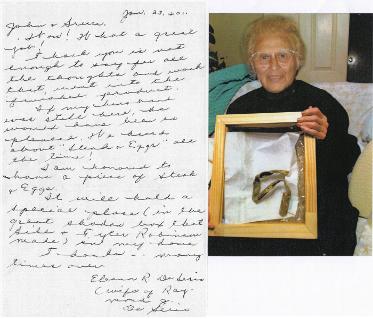 Jan. 23, 20..
John & Bruce,
Wow! What a great
job!
Thank you is not
enough to say for all
the thoughts and work
that went into the
product.
If my husband
was still here, he
would have been so
pleased. We heard
about "Steak & Eggs" all
the time!
I am honored to
have a piece of Steak
& Eggs.
It will hold a
special place (in the
great shadow box that
Bill & Tyler Robinson
made) in my home
Thanks - many
times over.
R.
(wife of Ray-
mond J.